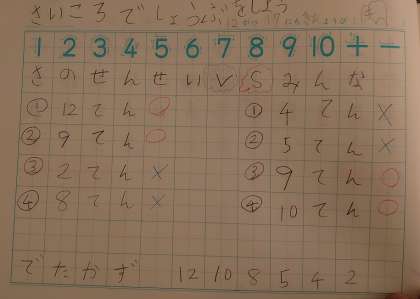 さいころでしょうぶをしよう
1 2 3 4 5 6 7 8 9 10 + -
さのせんせい V S みんな
① 12てん ○ ① 4てん ×
② 9てん ○ ② 5てん ×
③ 2てん × ③ 9てん ○
④ 8てん × ④ 10てん ○
でたかず 12 10 8 5 4 2